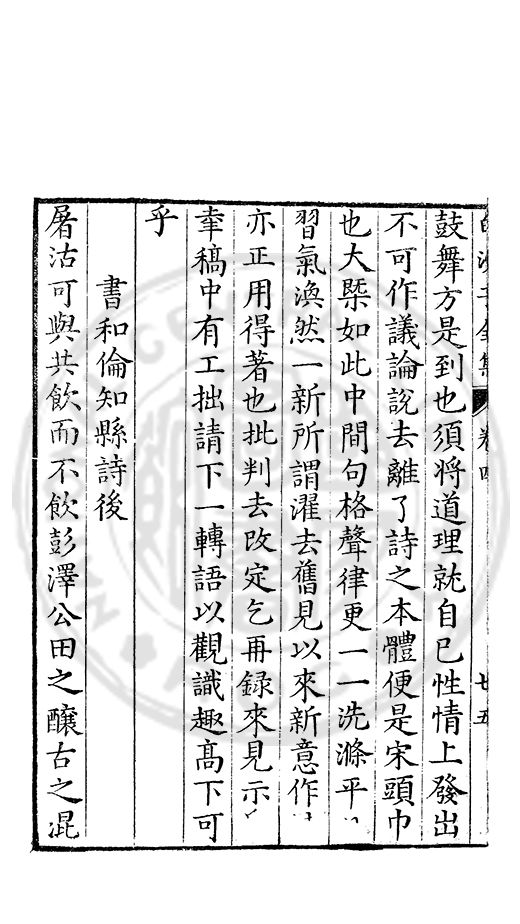 白沙子全集 卷四 廿五
鼓舞方是到也須將道理就自已性情上發出
不可作議論說去離了詩之本體便是宋頭巾
也大槩如此中間句格聲律更一一洗滌平
習氣渙然一新所謂濯去舊見以來新意作
亦正用得著也批判去改定乞再錄來見示
拙稿中有工拙請下一轉語以觀識趣高下可
乎
書和倫知縣詩後
屠沽可與共飲而不飲彭澤公田之釀古之混